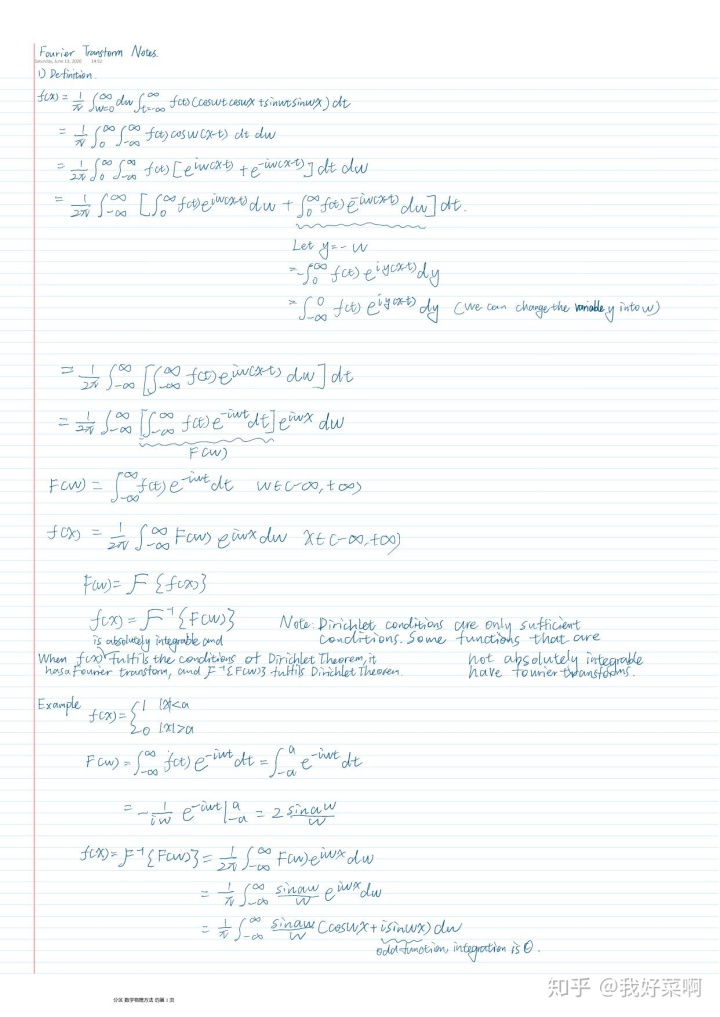 Fourier Transform Notes.
Saturday, June 13, 2020 14:52
1) Definition.
f(x) = 1/π ∫_{w=0}^{∞} dw ∫_{t=-∞}^{∞} f(t) (coswt coswx + sinwt sinwx) dt
= 1/π ∫_0^∞ ∫_{-∞}^∞ f(t) cosw(x-t) dt dw
= 1/2π ∫_0^∞ ∫_{-∞}^∞ f(t) [e^{iw(x-t)} + e^{-iw(x-t)}] dt dw
= 1/2π ∫_{-∞}^∞ [∫_0^∞ f(t) e^{iw(x-t)} dw + ∫_0^∞ f(t) e^{-iw(x-t)} dw] dt.
Let y = -w
= -∫_0^{-∞} f(t) e^{iy(x-t)} dy
= ∫_{-∞}^0 f(t) e^{iy(x-t)} dy (we can change the variable y into w)
= 1/2π ∫_{-∞}^∞ [∫_{-∞}^∞ f(t) e^{iw(x-t)} dw] dt
= 1/2π ∫_{-∞}^∞ [∫_{-∞}^∞ f(t) e^{-iwt} dt] e^{iwx} dw
F(w)
F(w) = ∫_{-∞}^∞ f(t) e^{-iwt} dt w∈(-∞,+∞)
f(x) = 1/2π ∫_{-∞}^∞ F(w) e^{iwx} dw x∈(-∞,+∞)
F(w) = F {f(x)}
f(x) = F^{-1} {F(w)}
Note: Dirichlet conditions are only sufficient
conditions. Some functions that are
not absolutely integrable
have fourier transforms.
is absolutely integrable and
When f(x) fulfils the conditions of Dirichlet Theorem, it
has a Fourier transform, and F^{-1}{F(w)} fulfils Dirichlet Theorem.
Example f(x) = { 1 |x|<a
0 |x|>a
F(w) = ∫_{-∞}^∞ f(t) e^{-iwt} dt = ∫_{-a}^a e^{-iwt} dt
= -1/iw e^{-iwt} |_{-a}^a = 2 sinaw/w
f(x) = F^{-1} {F(w)} = 1/2π ∫_{-∞}^∞ F(w) e^{iwx} dw
= 1/π ∫_{-∞}^∞ sinaw/w e^{iwx} dw
= 1/π ∫_{-∞}^∞ sinaw/w (coswx + isinwx) dw
odd function, integration is 0.
分区 数学物理方法 的第 1 页
知乎 @我好菜啊